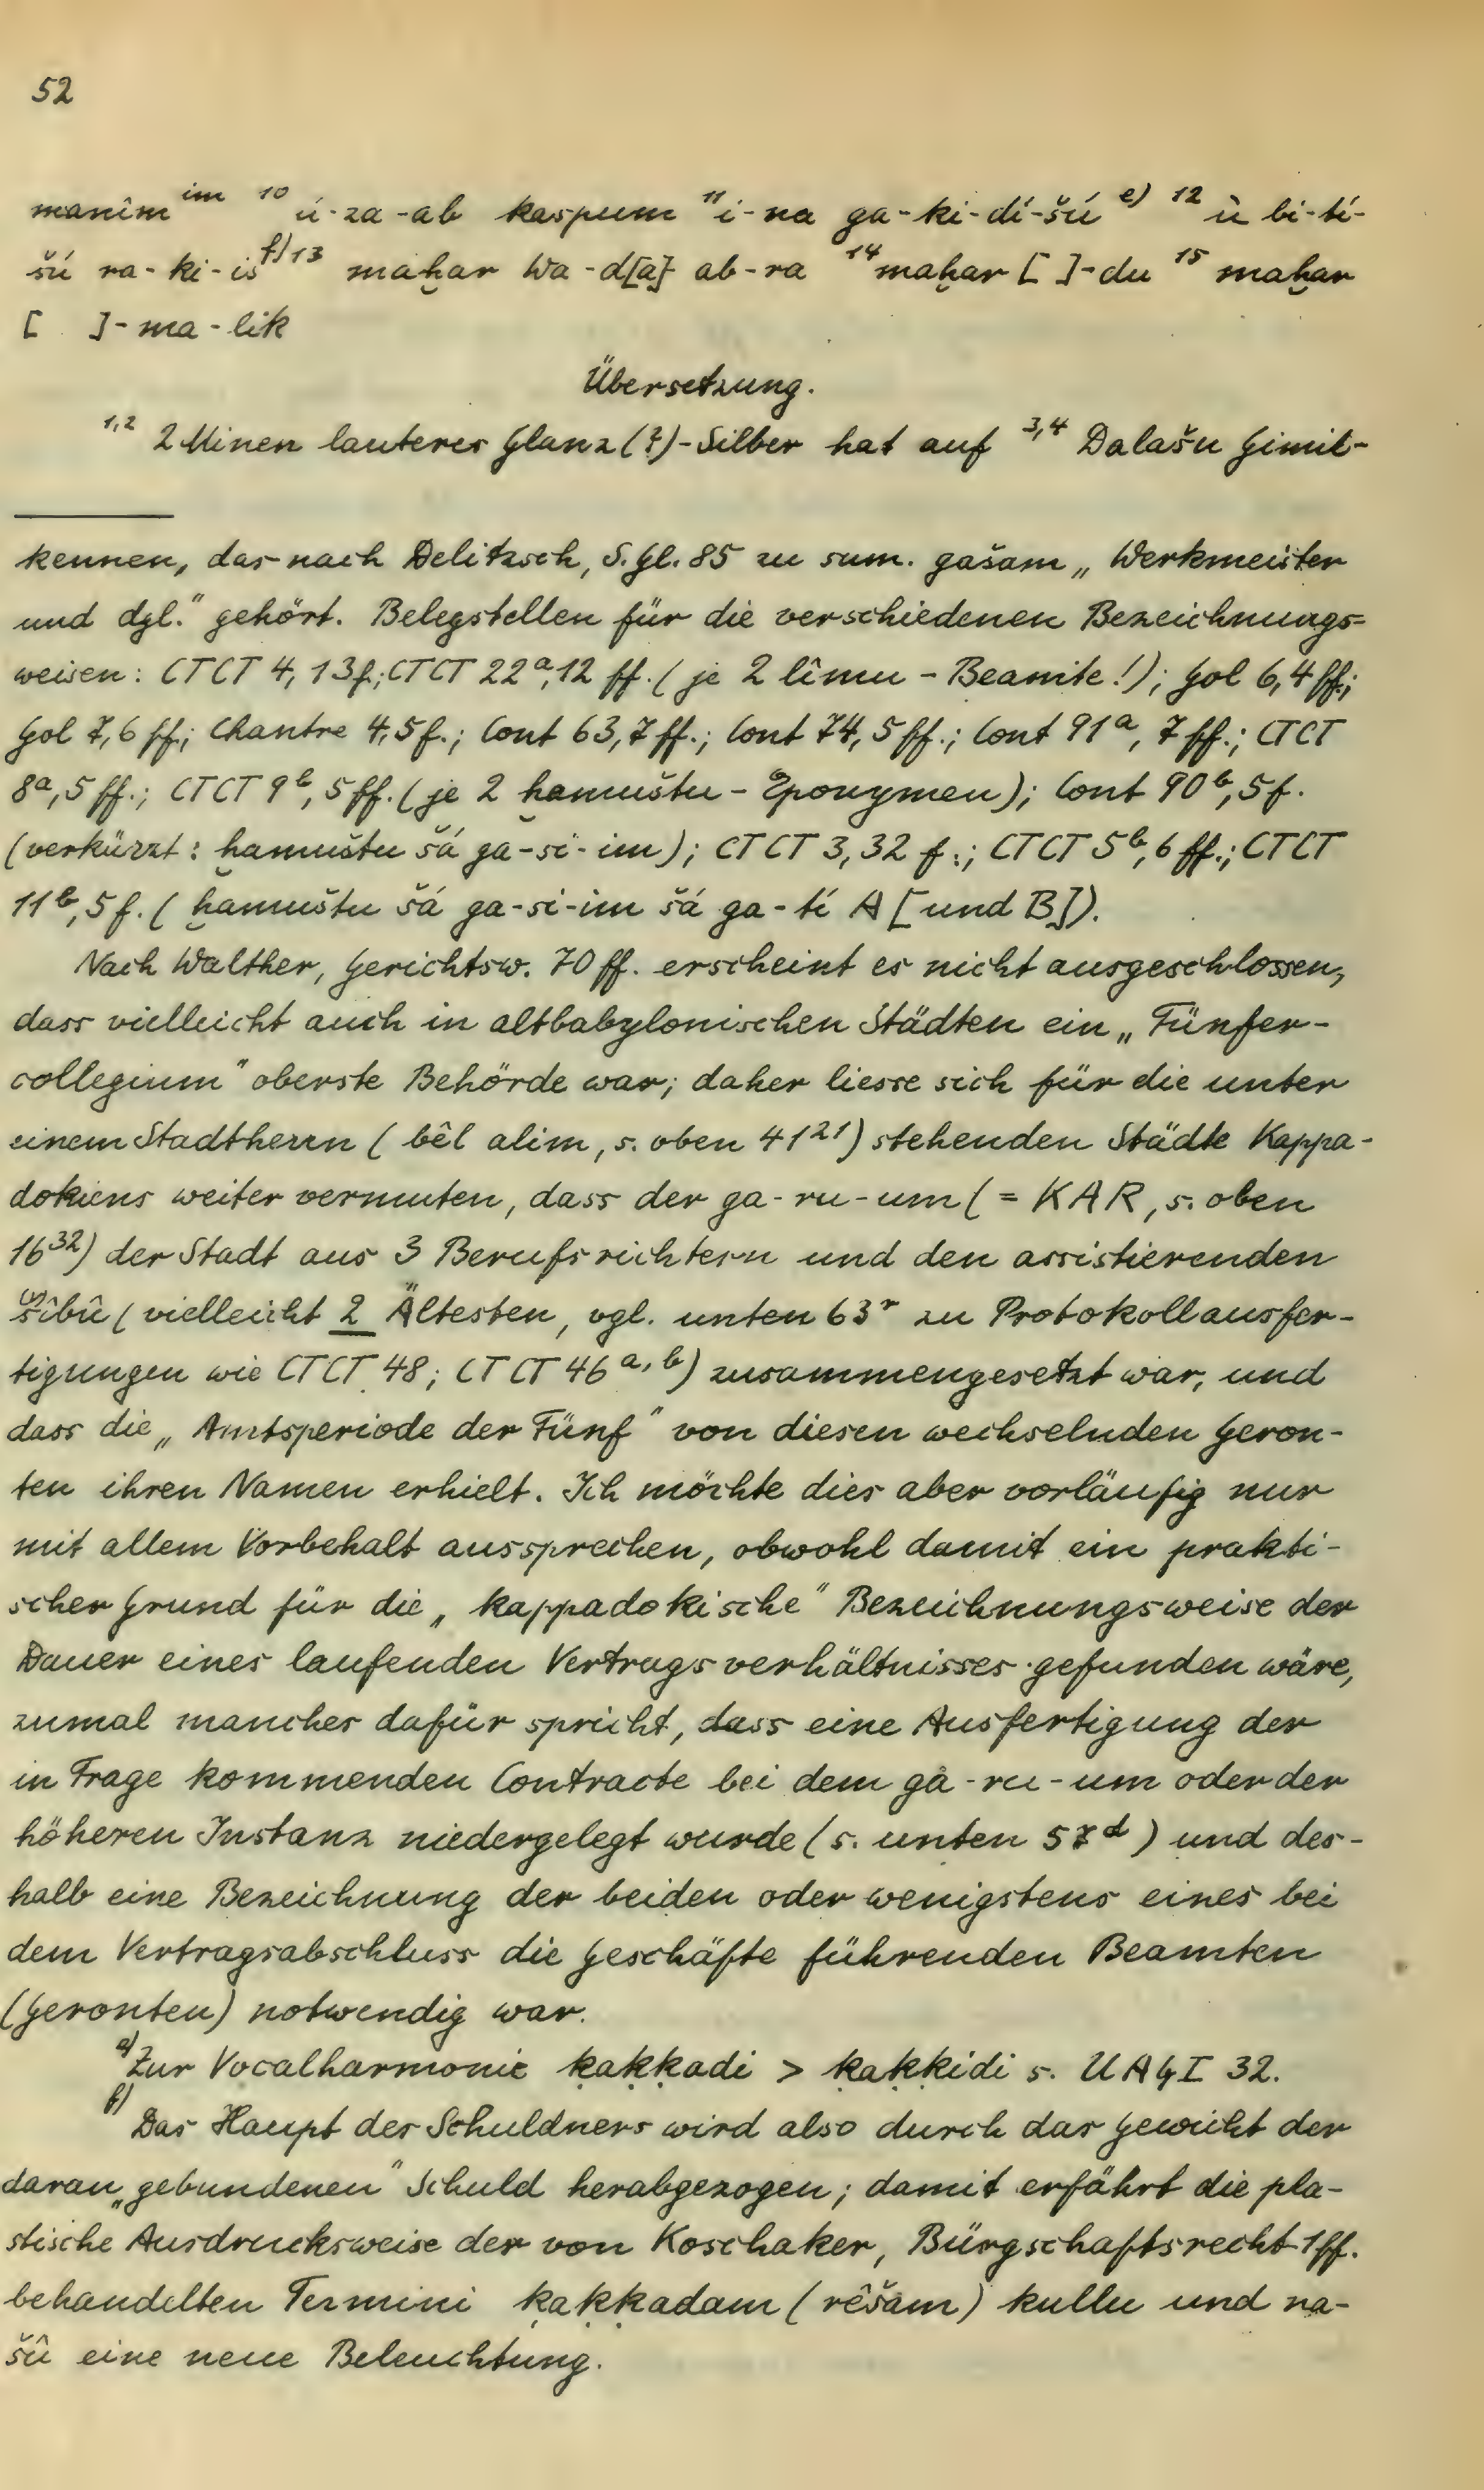 52
manîm^im 10 ú-za-ab kaspum 11 i-na ga-ki-dí-šú e) 12 ù bi-tí-
šú ra-ki-is f) 13 maḫar Wa-d[a]-ab-ra 14 maḫar [ ]-du 15 maḫar
[ ]-ma-lik
Übersetzung.
1,2 2 Minen lauteres Glanz(?)-Silber hat auf 3,4 Dalašu Gimil-
kennen, das nach Delitzsch, S.Gl. 85 zu sum. gašam „Werkmeister
und dgl." gehört. Belegstellen für die verschiedenen Bezeichnungs=
weisen: CTCT 4, 13f.; CTCT 22a, 12 ff. (je 2 lîmu-Beamte!); Gol 6,4 ff.;
Gol 7,6 ff.; Chantre 4,5 f.; Cont 63,7 ff.; Cont 74,5 ff.; Cont 91a, 7 ff.; CTCT
8a, 5 ff.; CTCT 9b, 5 ff. (je 2 ḫamuštu-Eponymen); Cont 90b, 5 f.
(verkürzt: ḫamuštu šá ga-si-im); CTCT 3,32 f.; CTCT 5b, 6 ff.; CTCT
11b, 5 f. (ḫamuštu šá ga-si-im šá ga-tí A [und B]).
Nach Walther, Gerichtsw. 70 ff. erscheint es nicht ausgeschlossen,
dass vielleicht auch in altbabylonischen Städten ein „Fünfer-
collegium" oberste Behörde war; daher liesse sich für die unter
einem Stadtherrn (bêl alim, s. oben 41²¹) stehenden Städte Kappa-
dokiens weiter vermuten, dass der ga-ru-um (= KAR, s. oben
16³²) der Stadt aus 3 Berufsrichtern und den assistierenden
šîbû (vielleicht 2 Ältesten, vgl. unten 63r zu Protokollausfer-
tigungen wie CTCT 48; CTCT 46a,b) zusammengesetzt war, und
dass die „Amtsperiode der Fünf" von diesen wechselnden Geron-
ten ihren Namen erhielt. Ich möchte dies aber vorläufig nur
mit allem Vorbehalt aussprechen, obwohl damit ein prakti-
scher Grund für die „kappadokische" Bezeichnungsweise der
Dauer eines laufenden Vertragsverhältnisses gefunden wäre,
zumal manches dafür spricht, dass eine Ausfertigung der
in Frage kommenden Contracte bei dem gà-ru-um oder der
höheren Instanz niedergelegt wurde (s. unten 57d) und des-
halb eine Bezeichnung der beiden oder wenigstens eines bei
dem Vertragsabschluss die Geschäfte führenden Beamten
(Geronten) notwendig war.
e) Zur Vocalharmonie ḳaḳḳadi > ḳaḳḳidi s. UAG I 32.
f) Das Haupt des Schuldners wird also durch das Gewicht der
daran „gebundenen" Schuld herabgezogen; damit erfährt die pla-
stische Ausdrucksweise der von Koschaker, Bürgschaftsrecht 1 ff.
behandelten Termini ḳaḳḳadam (rêšam) kullu und na-
šû eine neue Beleuchtung.